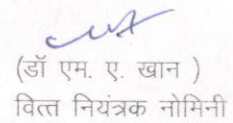 (डॉ एम. ए. खान )
वित्त नियंत्रक नोमिनी